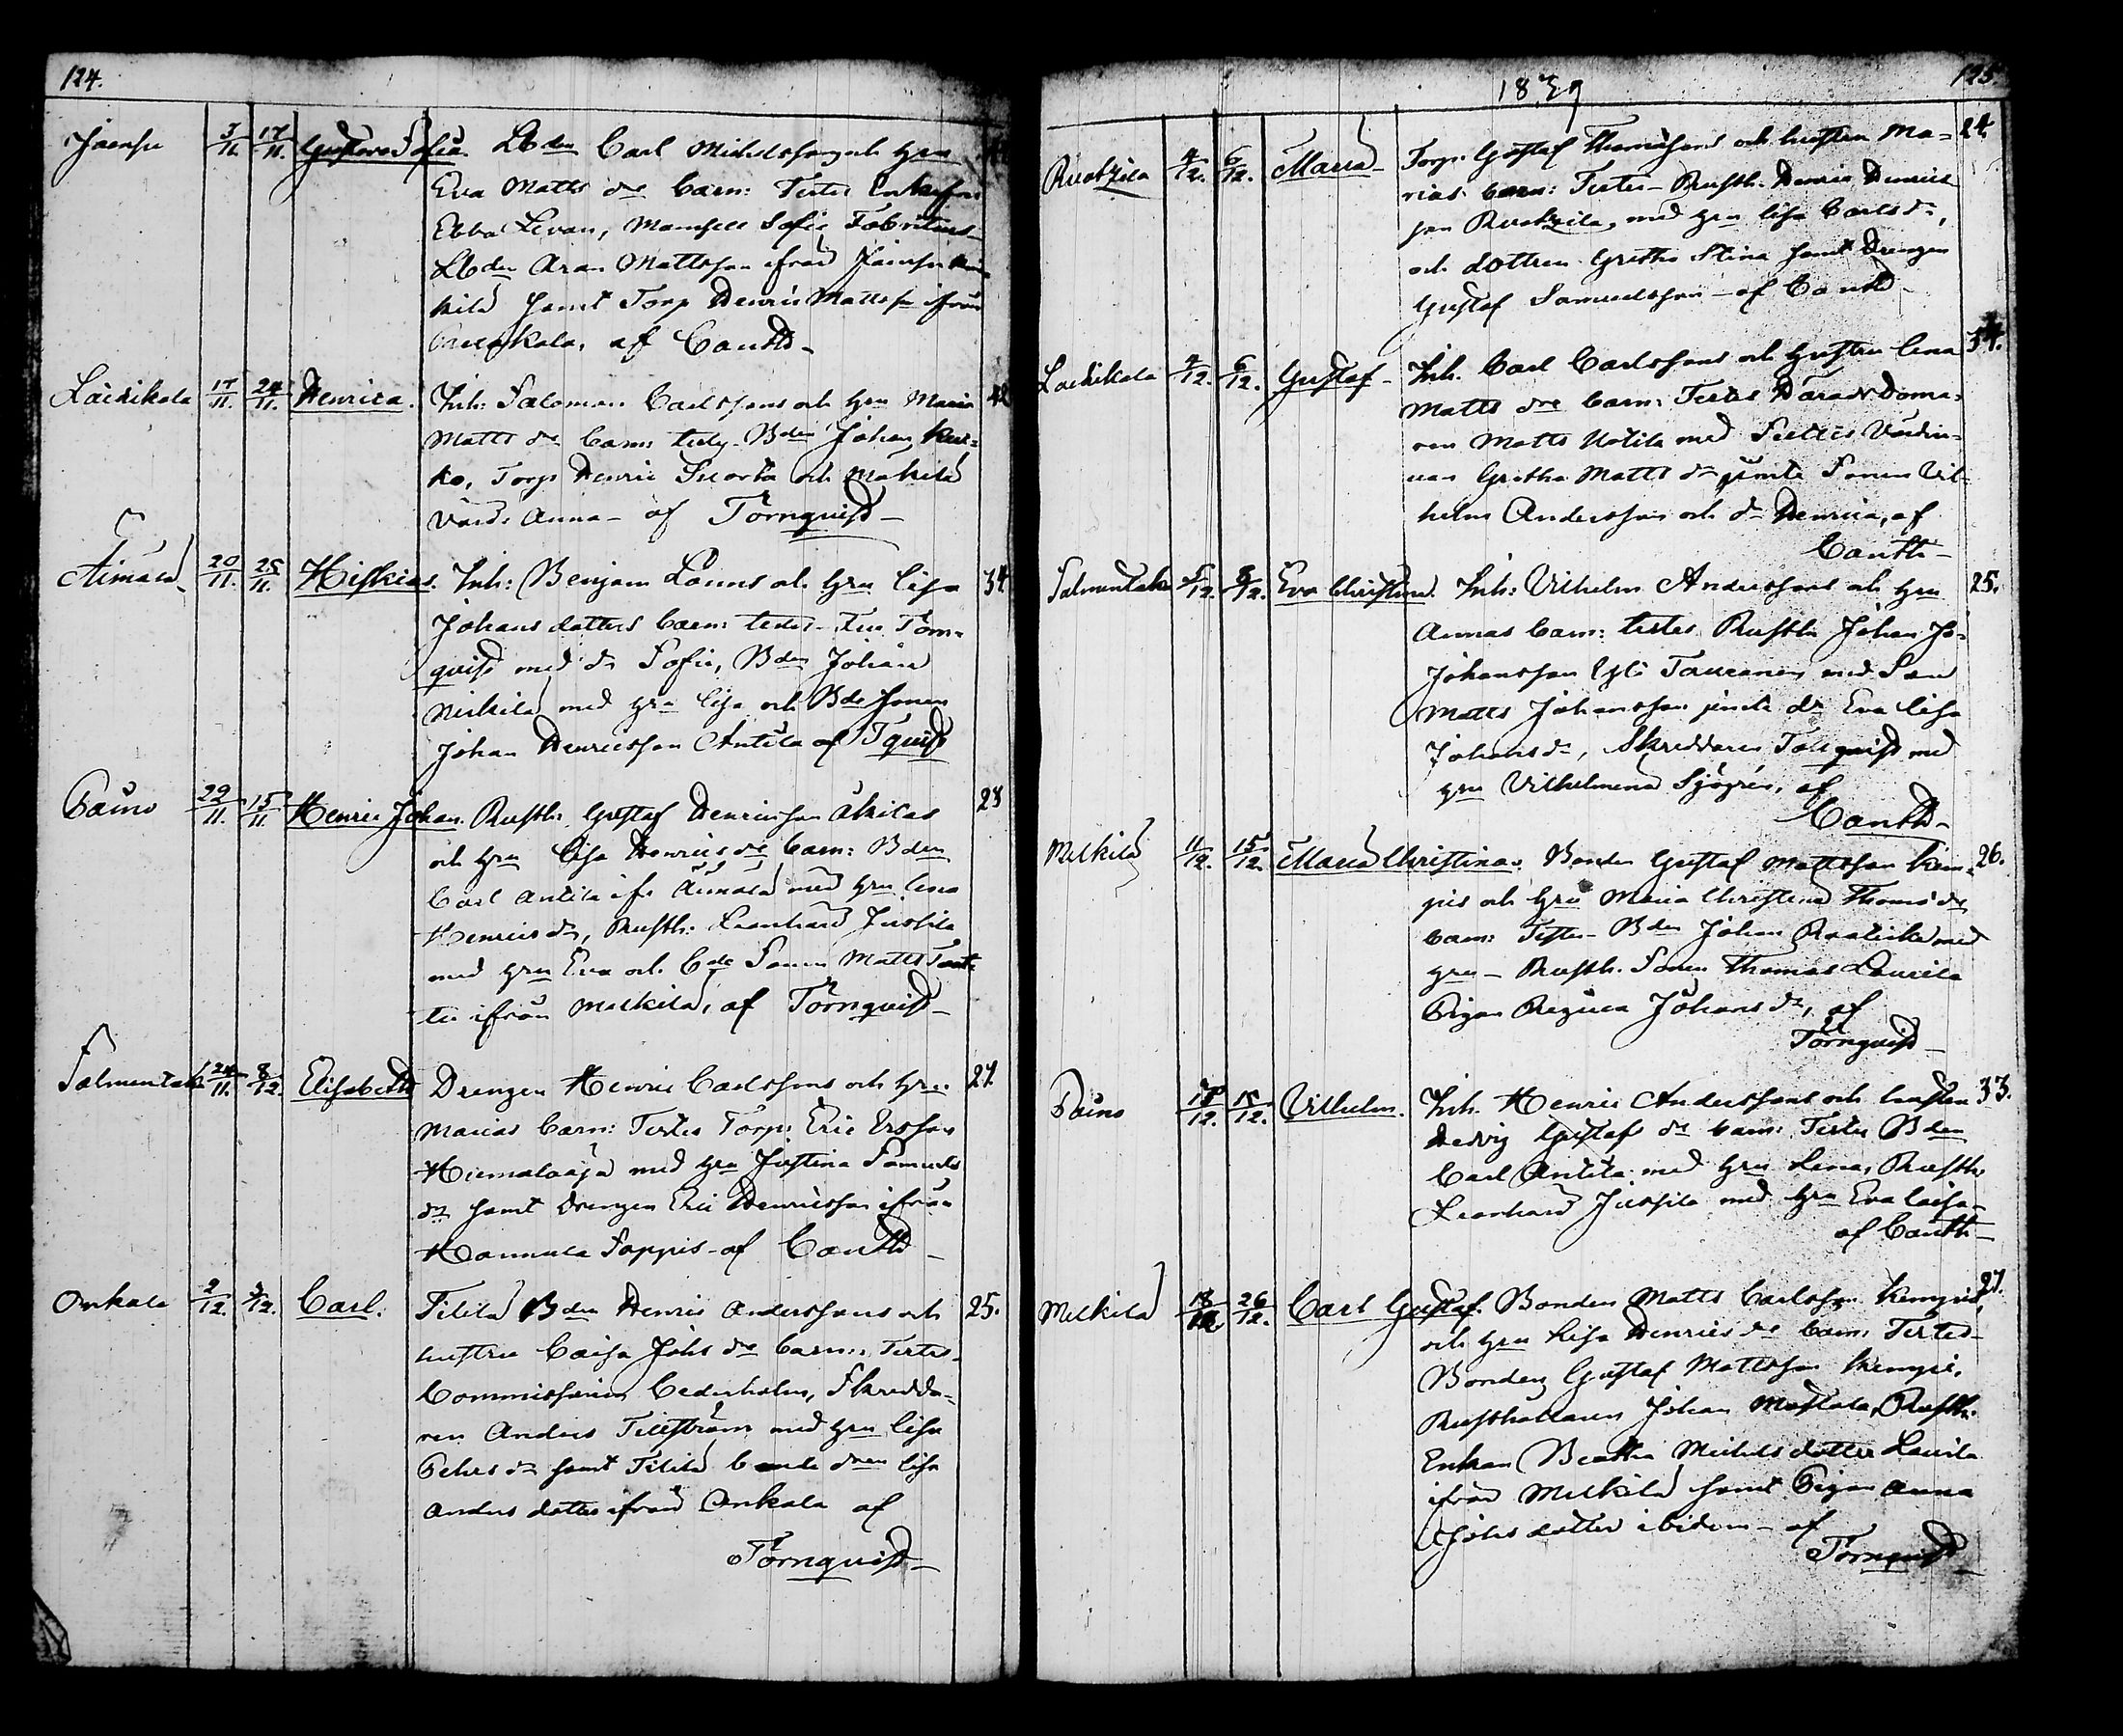 124.
Gustava Sofia. Lbden Carl Michelssons och hru
Eva Matts dr barn: Testes Enkefru
Ebba Levan, Mamsell Sofie Fabritius
Lbden Aran Mattsson ifrån
kilä samt Torp Henric Mattss ifrån
af Canth
Laihikala 17/11. 24/11. Henrica. Inh: Salomon Carlssons och hru Maria
Matts dr barn: test. Bden Johan
ko, Torp Henric och Mäkilä
Värd. Anna - af Törnquist
20/11. 25/11. Hiskias. Inh: Benjam och hru Lisa 34
Johans dotters barn: testes - Törn-
quist med dr Sofie, Bden Johan
med hru Lisa och Bde sonen
Johan Henricsson Anttila af Tquist
Pauno 29/11. 15/11. Henric Johan. Rusth. Gustaf Henricsson 28
och hru Lisa Henrics dr barn: Bden
Carl Antila ifr med hru Lena
Henrics dr, Rusth: Leonhard Jussila
med hru Eva och Bde Sonen Matts
ifrån Melkilä, af Törnquist
Salmentaka 24/11. 8/12. Elisabeth Drengen Henric Carlssons och hru 27.
Marias barn: Testes Torp: Eric Ersson
Hiemaloaja med hru Justina Samuels
dr samt Drengen Eric Henricsson ifrån
Hannula Sappis - af Canth
Onkala 2/12. Carl. Tilila Bden Henric Anderssons och 25.
hustru Caisa Johs dr barn: Testes
Commissarien Cederholm, Skredda-
ren Anders Tillström med hru Lisa
Pehrs dr samt Tilila dren Lisa
Anders dotter ifrån Onkala af
Törnquist
1839 125
4/12. 6/12. Maria Torp. Gustaf Thomassons och hustru Ma- 24.
rias barn: Testes - Rusth. Henric Henrics
son med hru Lisa Carls dr,
och dottren Gretha Stina samt Drengen
Gustaf Samuelsson - af Canth
Laihikala 4/12. 6/12. Gustaf Inh. Carl Carlssons och hustru Lena 34.
Matts dr barn: Testes Härads Doma-
ren Matts Uotila med Värdin-
nan Gretha Matts dr jemte Sonen Vil-
helm Andersson och dr Henrica, af
Canth
Salmentaka 5/12. 8/12. Eva Christina. Inh: Vilhelm Anderssons och hru 25.
Annas barn: testes Rusth Johan Jo-
Johansson Tauranen med Son
Matts Johansson jemte dr Eva Lisa
Johans dr, Skreddaren Tallquist med
hru Vilhelmina Sjögrén, af
Canth
Melkilä 11/12. 15/12. Maria Christina. Bonden Gustaf Mattsson Kem- 26.
pis och hru Maria Christina Thoms dr
barn: Testes - Bden Johan med
hru - Rusth. Sonen Thomas Laurila
Pigan Regina Johans dr, af
Törnquist
Pauno 12. 15/12. Vilhelm. Inh. Henric Anderssons och hustru 33.
Hedvig Gustafs dr barn: Testes Bden
Carl Antila med hru Lena, Rusth
Leonhard Jussila med hru Eva Caisa
af Canth
Melkilä 18/12 26/12. Carl Gustaf. Bonden Matts Carlsson Kempis 27.
och hru Lisa Henrics dr barn: Testes
Bonden Gustaf Mattsson Kempis,
Rusthållaren Johan Mattala, Rusth:
Enkan Beatha Michels dotter Laurila
ifrån Melkilä samt Pigan Anna
Johs dotter ibidem - af
Törnquist